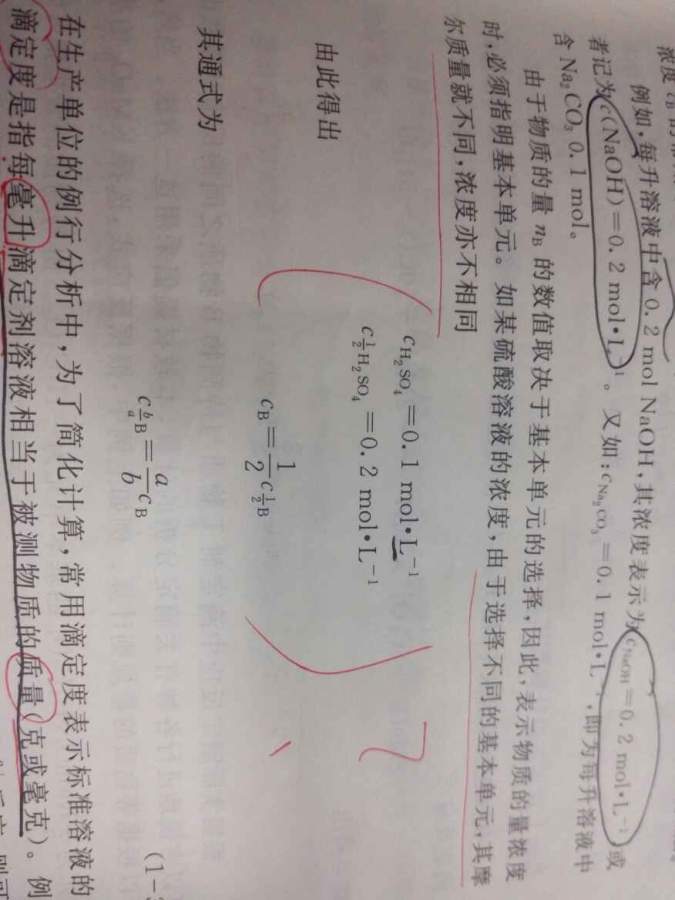 浓度 c
例如,每升溶液中含 0.2 mol NaOH,其浓度表示为 c_NaOH=0.2 mol·L⁻¹ 或
者记为 c(NaOH)=0.2 mol·L⁻¹。又如:c_Na₂CO₃=0.1 mol·L⁻¹,即为每升溶液中
含 Na₂CO₃ 0.1 mol。
由于物质的量 n_B 的数值取决于基本单元的选择,因此,表示物质的量浓度
时,必须指明基本单元。如某硫酸溶液的浓度,由于选择不同的基本单元,其摩
尔质量就不同,浓度亦不相同
c_H₂SO₄=0.1 mol·L⁻¹
c_½H₂SO₄=0.2 mol·L⁻¹
由此得出
c_B=1/2 c_½B
其通式为
c_(b/a)B=a/b c_B (1-
在生产单位的例行分析中,为了简化计算,常用滴定度表示标准溶液的
滴定度是指每毫升滴定剂溶液相当于被测物质的质量(克或毫克)。例